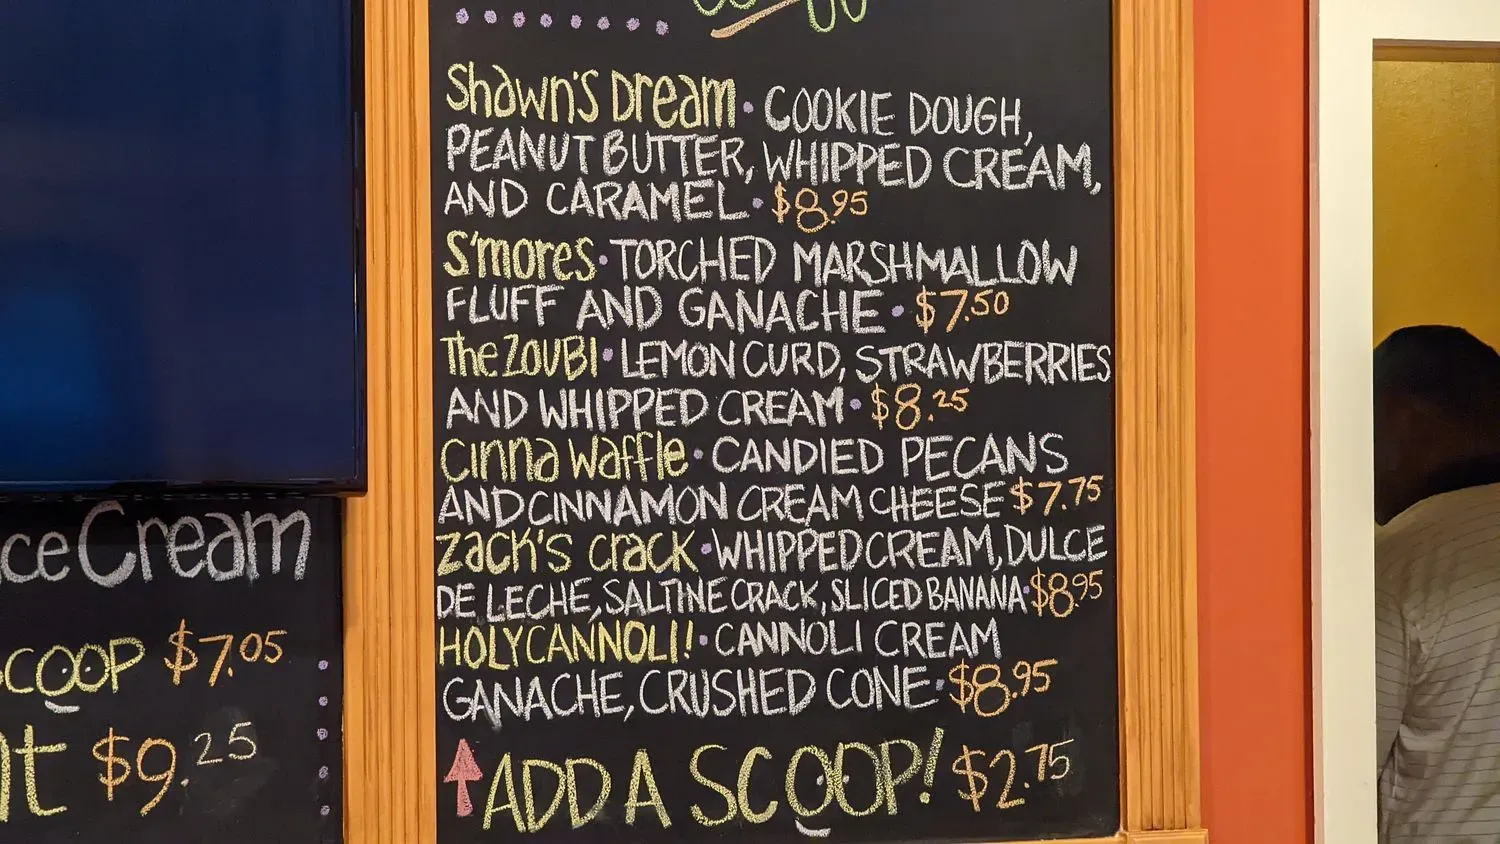 Shawn's Dream • COOKIE DOUGH,
PEANUT BUTTER, WHIPPED CREAM,
AND CARAMEL • $8.95
S'mores • TORCHED MARSHMALLOW
FLUFF AND GANACHE • $7.50
The ZOUBI • LEMON CURD, STRAWBERRIES
AND WHIPPED CREAM • $8.25
Cinna Waffle • CANDIED PECANS
AND CINNAMON CREAM CHEESE $7.75
Zack's Crack • WHIPPED CREAM, DULCE
DE LECHE, SALTINE CRACK, SLICED BANANA • $8.95
HOLY CANNOLI! • CANNOLI CREAM
GANACHE, CRUSHED CONE • $8.95
ADD A SCOOP! $2.75
ce Cream
SCOOP $7.05
$9.25